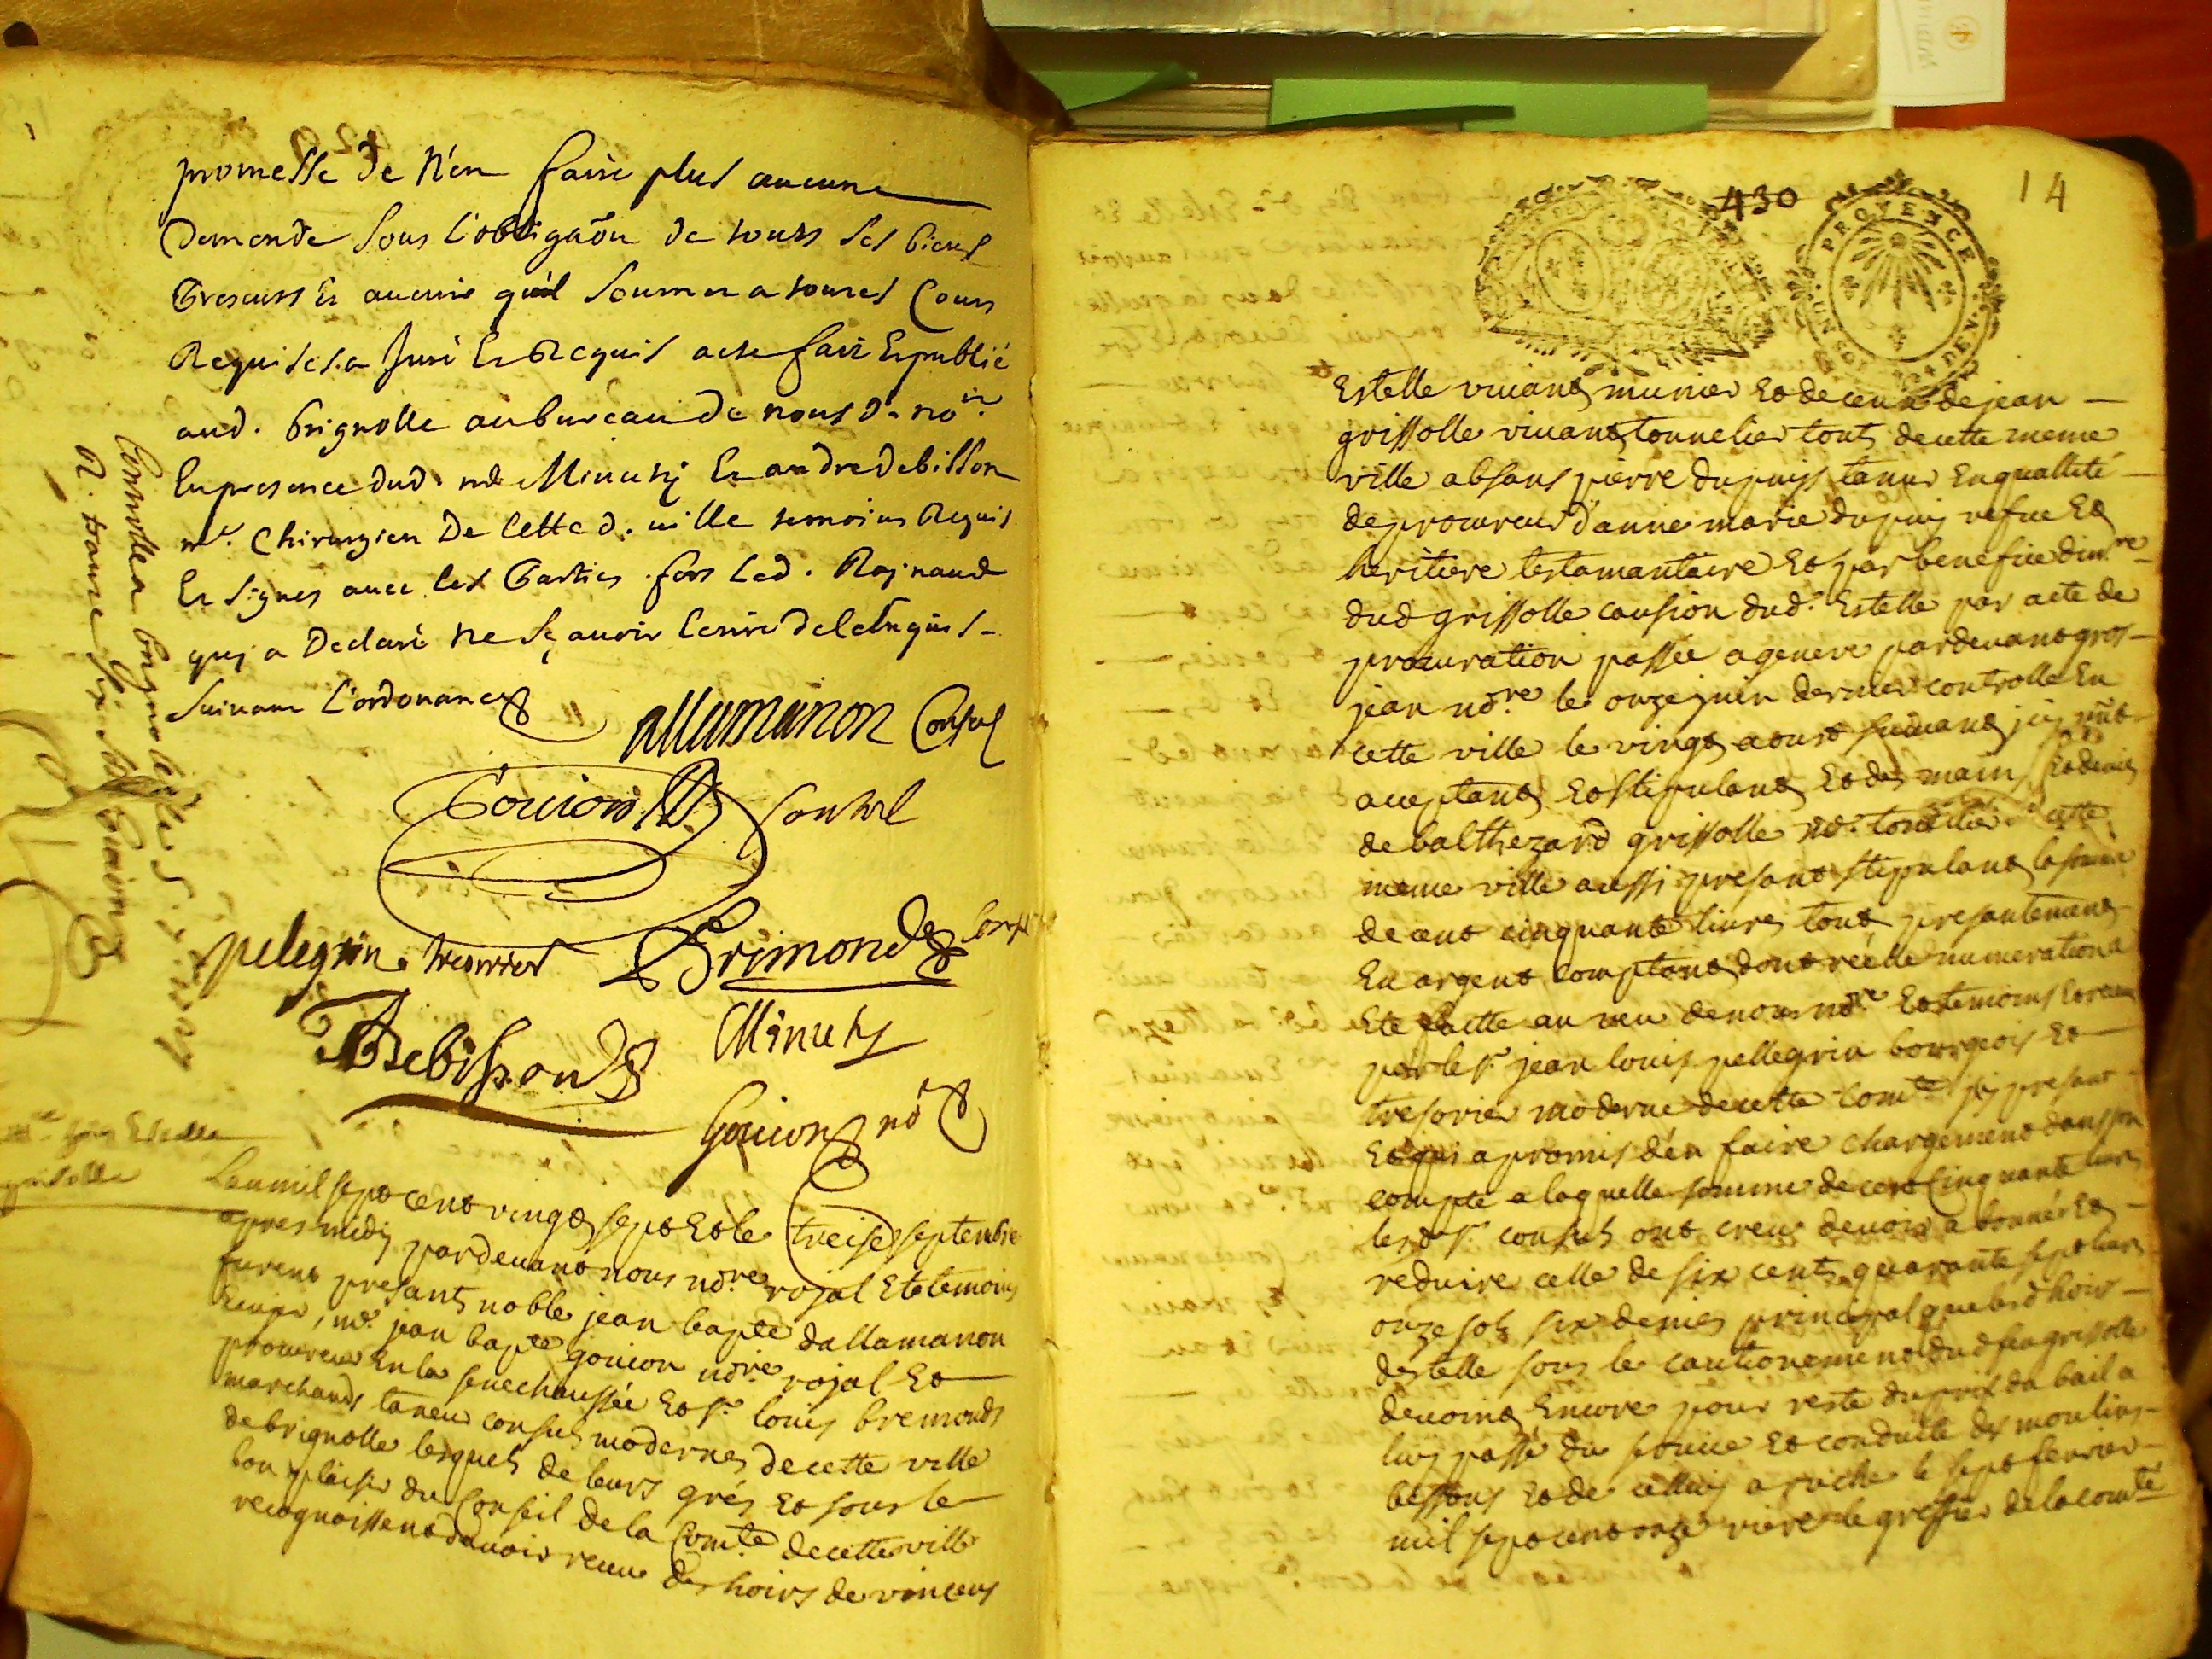 promesse de N'en faire plus aucune
Demende sous L'obligãon de touts ses biens
presents Et auenir qu'il soumet a toutes Cours
Requises a Juré Et Requis acte fait Et publié
aud. brignolle au bureau de nous d. no.re
En presence dud. me Minuty Et andre debisson
me. Chirurgien De Cette d. uille temoins Requis
Et signes auec les Parties fors led. Raynaud
quy a Declaré ne sçauoir Ecrire de ce Enquis
suiuant L'ordonance
allamanon Consul
Gouion Consul
pelegrin tresorier Brimond Consul
Debisson Minuty
Gouion no.re
Controllé a brignolle le
R.
hoirs Estelle
grisolle
Lan mil sept cent vingt sept Et le treise septembre
apres midy pardeuant nous no.re royal Et temoins
furent presants noble jean bapte dallamanon
Ecuyer, me. jean bapte gouion no.re royal Et
procureur En la senechaussée Et sr. louis bremond
marchand taneur consuls modernes de cette ville
de brignolle lesquels de leurs grés Et sous le
bon plaisir du Conseil de la Com.te de cette ville
recognoissent dauoir receu des hoirs de vincens
430
14
PROVENCE
UN SOL 4 DEN.
Estelle viuant munier Et de ceux de jean
grissolle viuant tonnelier touts de cette meme
ville absans pierre dupuys taneur En quallité
de procureur d'anne marie dupuy vefue Et
heritiere testamantaire Et par benefice dinv.re
dud grissolle caution dud. Estelle par acte de
procuration passée a geneve pardeuant gros
jean no.re le onze juin dernier controllé En
cette ville le vingt aoust suiuant jcy
aceptant Et stipulant Et des mains Et deniers
de balthezard grissolle me. tonnelier de cette
meme ville aussi presant stipulant la somme
de cent cinquante liures tout presantement
En argent comptant dont réelle numeration a
Eté faitte au veu de nous no.re Et temoins Et receu
par le sr. jean louis pellegrin bourgeois Et
tresorier moderne de cette Com.te jcy presant
Et qui a promis d'en faire chargement dans son
compte a laquelle somme de cent Cinquante liures
lesd. srs. consuls ont creu deuoir abonner Et
reduire celle de six cents quarante sept liures
onze sols six deniers principal que lesd hoirs
destelle sous le cautionement dud feu grissolle
deuoint Encore pour reste du prix du bail a
luy passé du seruice Et conduitte des moulins
bessons Et de celluy a le sept feurier
mil sept cent onze riere le greffier de la com.te